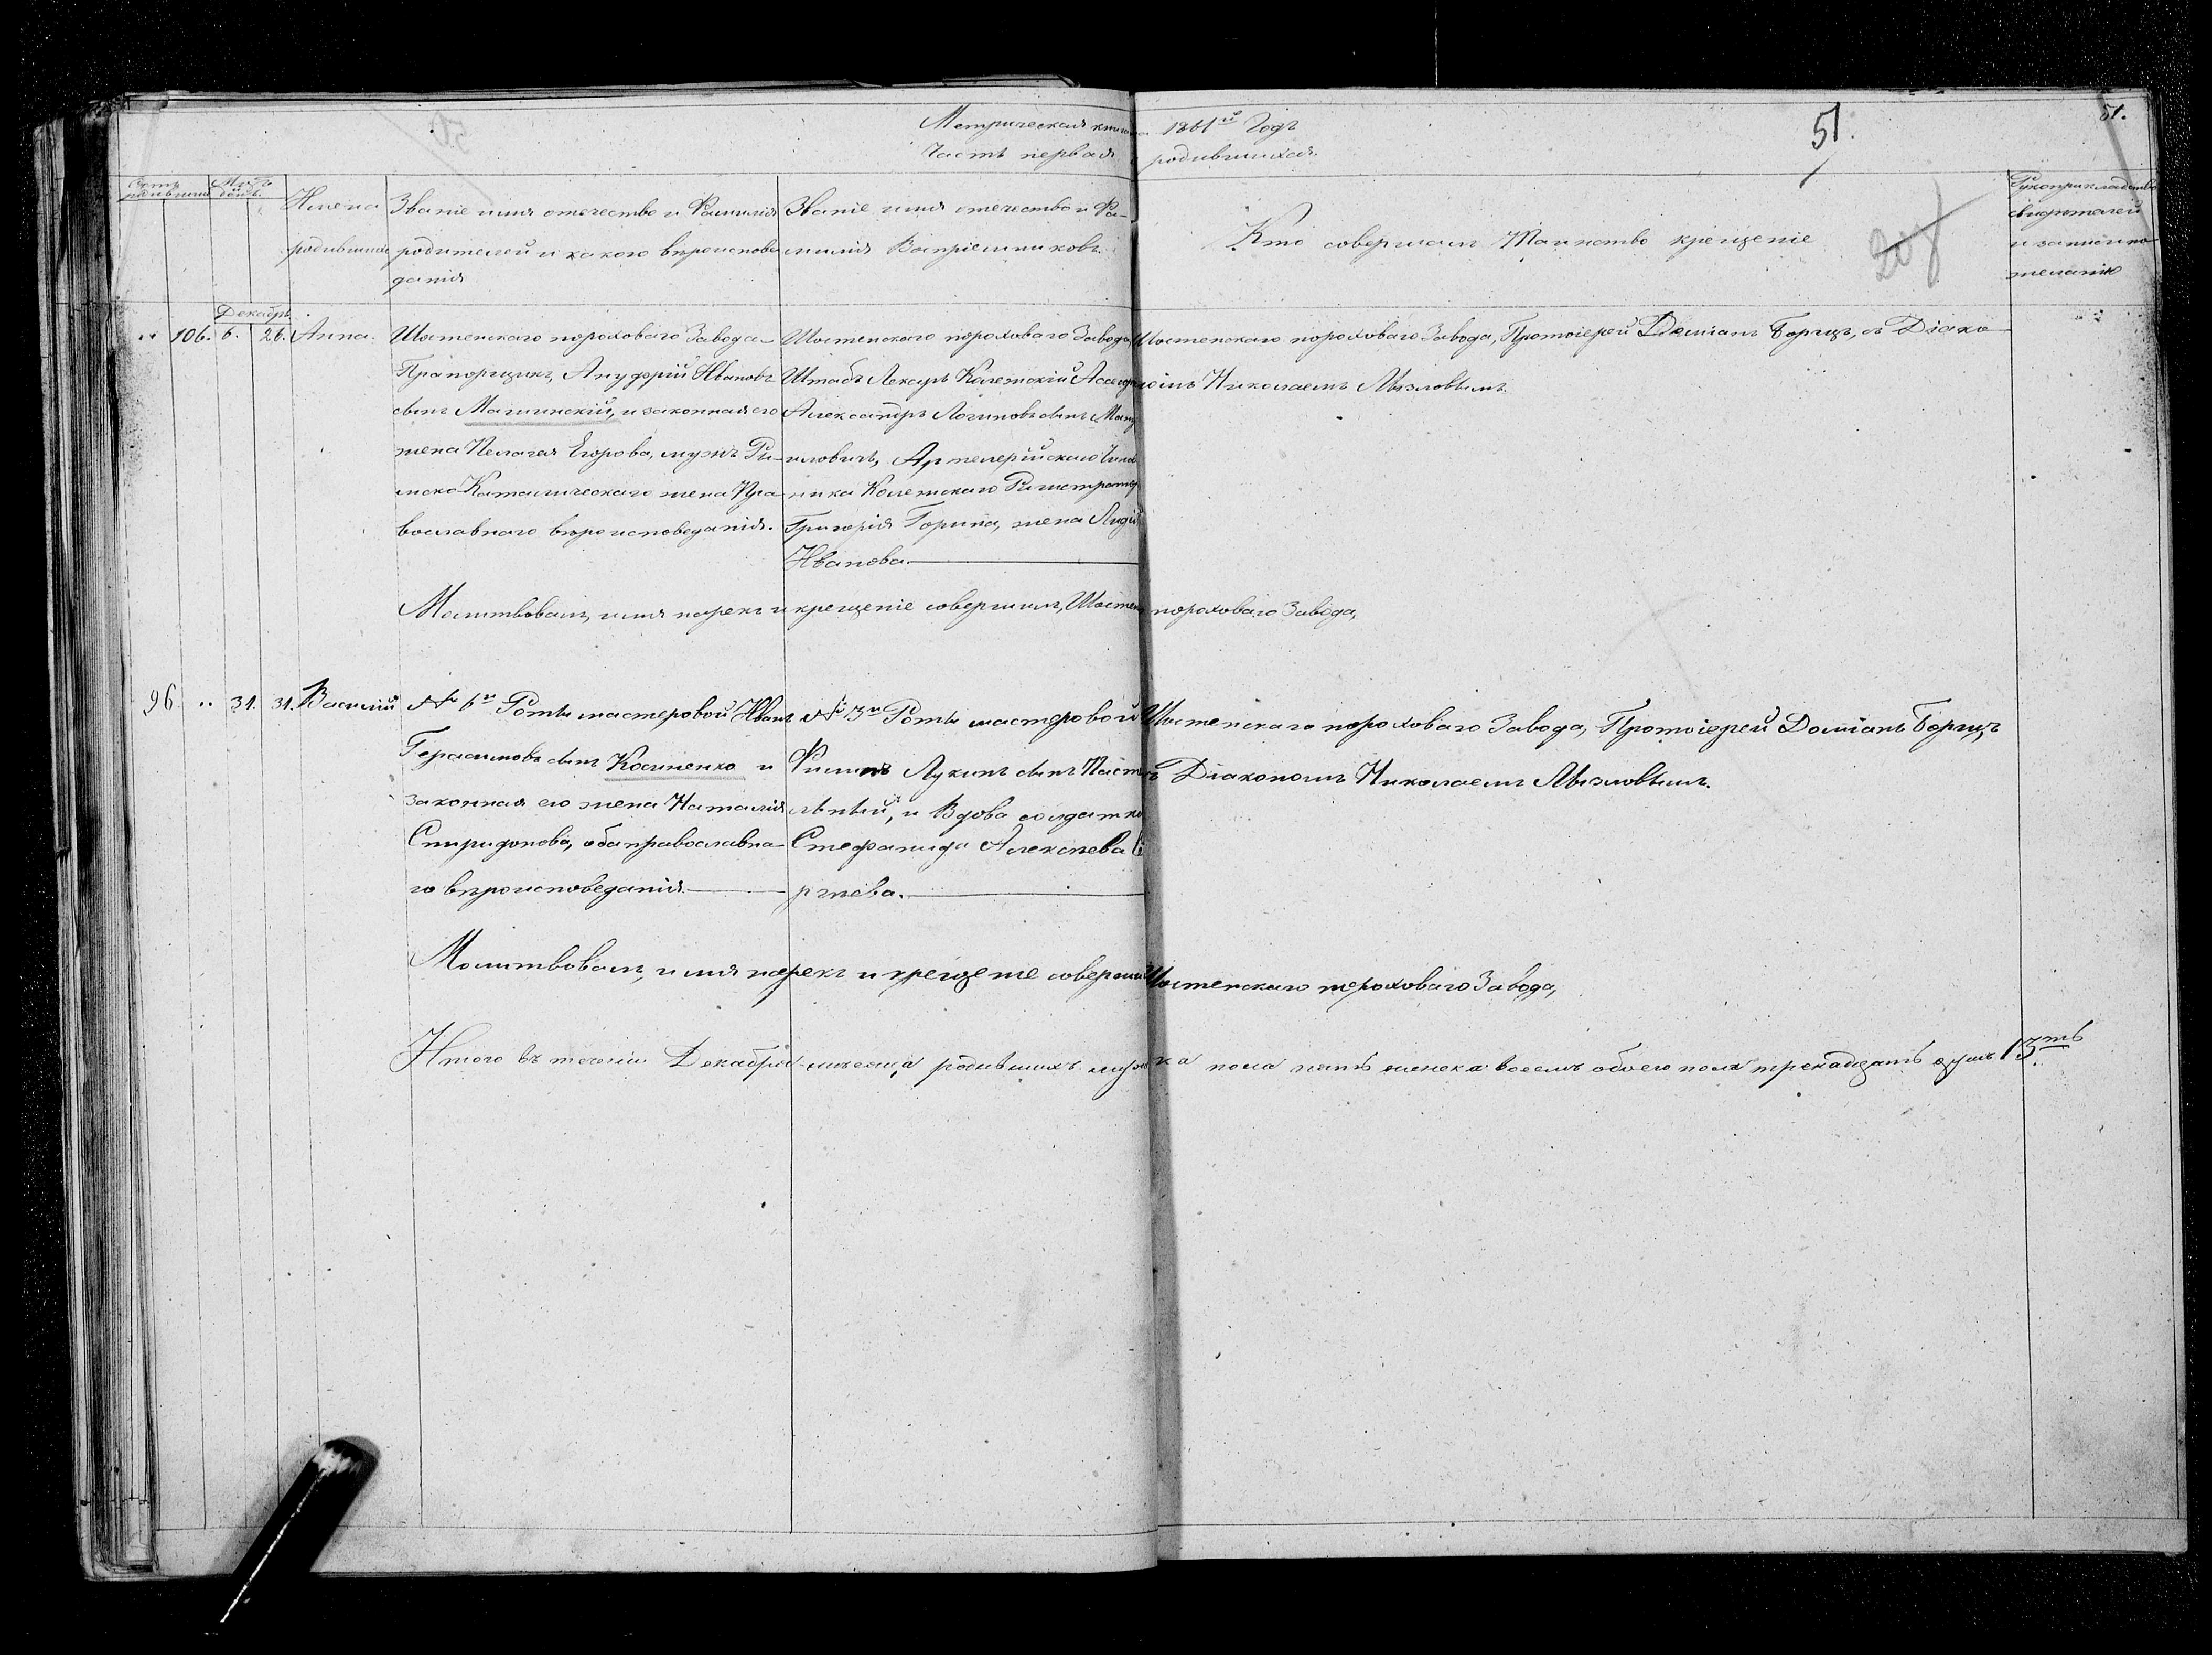 Метрическая книга 1861го Годъ
Часть первая о родившихся.
51.
51.
Счетъ родившихся
Мѣс. день.
Имена родившихся
Званіе имя отечество и Фамилія
родителей и какого вѣроиспове
данія
Званіе, имя отечество и Фа-
милія Воспріемниковъ.
Кто совершалъ Таинство крещеніе
Рукоприкладство
свидѣтелей
и записи по
желанію
208
Декабрь
" 106. 6. 26. Анна.
Шостенскаго пороховаго Завода
Прапорщикъ, Ануфрій Ивановъ
сынъ Малинскій, и законная его
жена Пелагея Егорова, мужъ Ри-
мско-Католическаго жена Пра-
вославнаго вѣроисповеданія.
Шостенскаго пороховаго Завода,
Штабъ Лекарь Колежскій Асесоръ
Александръ Логиновъ сынъ
иловичъ, Артелерійскаго Чинов
ника Колежскаго Регистратора
Григорія Горина, жена Лидія
Иванова.
Шостенскаго пороховаго Завода, Протоіерей Даміанъ Борщъ, съ Діако-
номъ Николаемъ Мызловымъ.
Молитвовалъ, имя нарекъ и крещеніе совершилъ, Шостен пороховаго Завода,
96 " 31. 31. Василій
№ 6й Роты мастеровой Иванъ
Герасимовъ сынъ Косиненко и
законная его жена Наталія
Спиридонова, оба православна-
го вѣроисповеданія.
№ 3й Роты мастеровой
Филипъ Лукинъ сынъ
лѣный, и Вдова солдатка
Стефанида Алексѣева Се
ргѣева.
Шостенскаго пороховаго Завода, Протоіерей Даміанъ Борщъ
съ Діакономъ Николаемъ Мызловымъ.
Молитвовалъ, имя нарекъ и крещеніе совершилъ Шостенскаго пороховаго Завода,
Итого въ теченіи Декабря мѣсяца родившихъ мужеска пола пять женска восемь обоего пола тренадцать душъ 13ть.